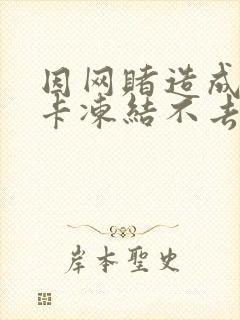 因网賭造成
卡凍結不去
岸本聖史